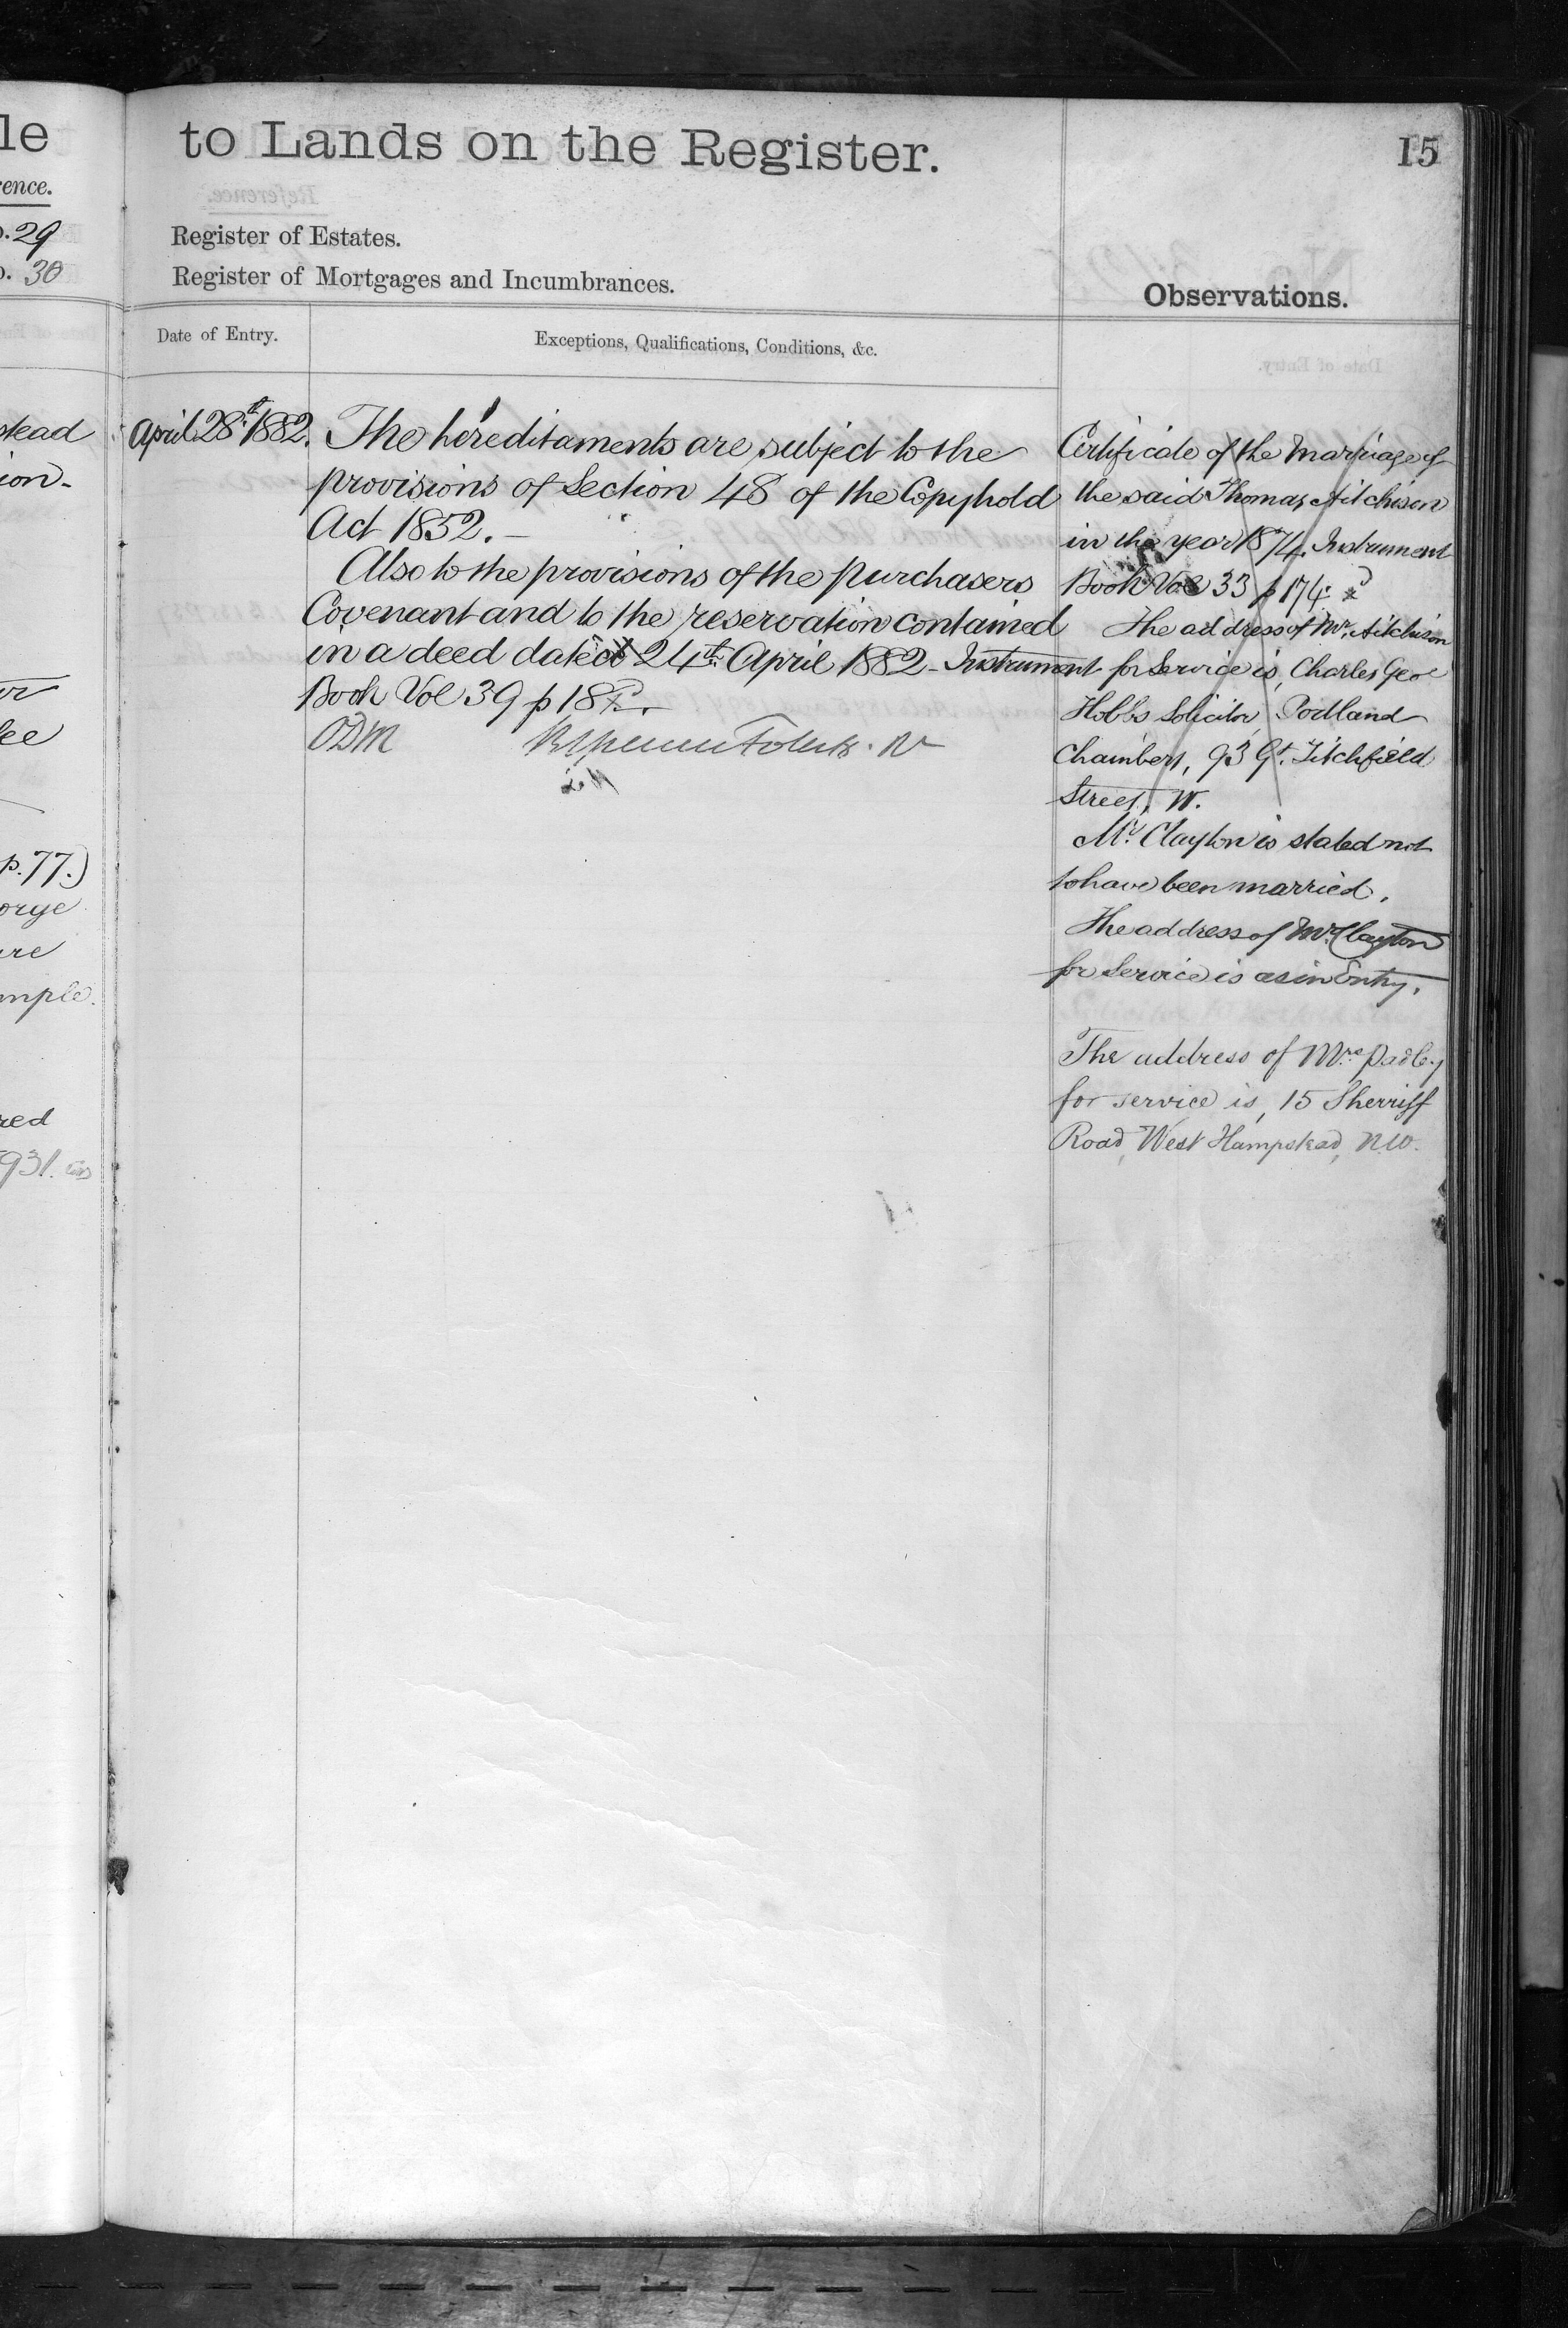 le
to Lands on the Register.
15
ence.
Register of Estates.
Register of Mortgages and Incumbrances.
. 29
. 30
Observations.
Date of Entry.
Exceptions, Qualifications, Conditions, &c.
April 28th 1882.
The hereditaments are subject to the
provisions of Section 48 of the Copyhold
Act 1852. —
Also to the provisions of the purchasers
Covenant and to the reservation contained
in a deed dated 24th April 1882 - Instrument
Book Vol 39 p 18
ODM
Certificate of the Marriage of
the said Thomas Aitchison
in the year 1874. Instrument
Book Vol 33 p 174.
The address of Mr. Aitchison
for Service is, Charles Geo
Hobbs Solicitor, Portland
Chambers, 93 Gt. Titchfield
Street, W.
Mr. Clayton is stated not
to have been married.
The address of Mr. Clayton
for Service is as in Entry.
The address of Mrs Padley
for service is, 15 Sherriff
Road, West Hampstead, N.W.
stead
ion-
ee
p. 77.)
orge
ure
imple.
red
931.